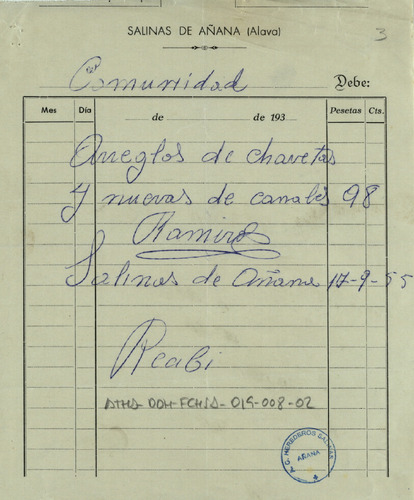 SALINAS DE AÑANA (Alava)
3
Comunidad Debe:
Mes Día de de 193 Pesetas Cts.
Arreglos de chavetas
y nuevas de canales 98
Ramiro
Salinas de Añana 17-9-55
Recibi
ATHA-DDH-FCHSA-015-008-02
HEREDEROS SALINAS
AÑANA